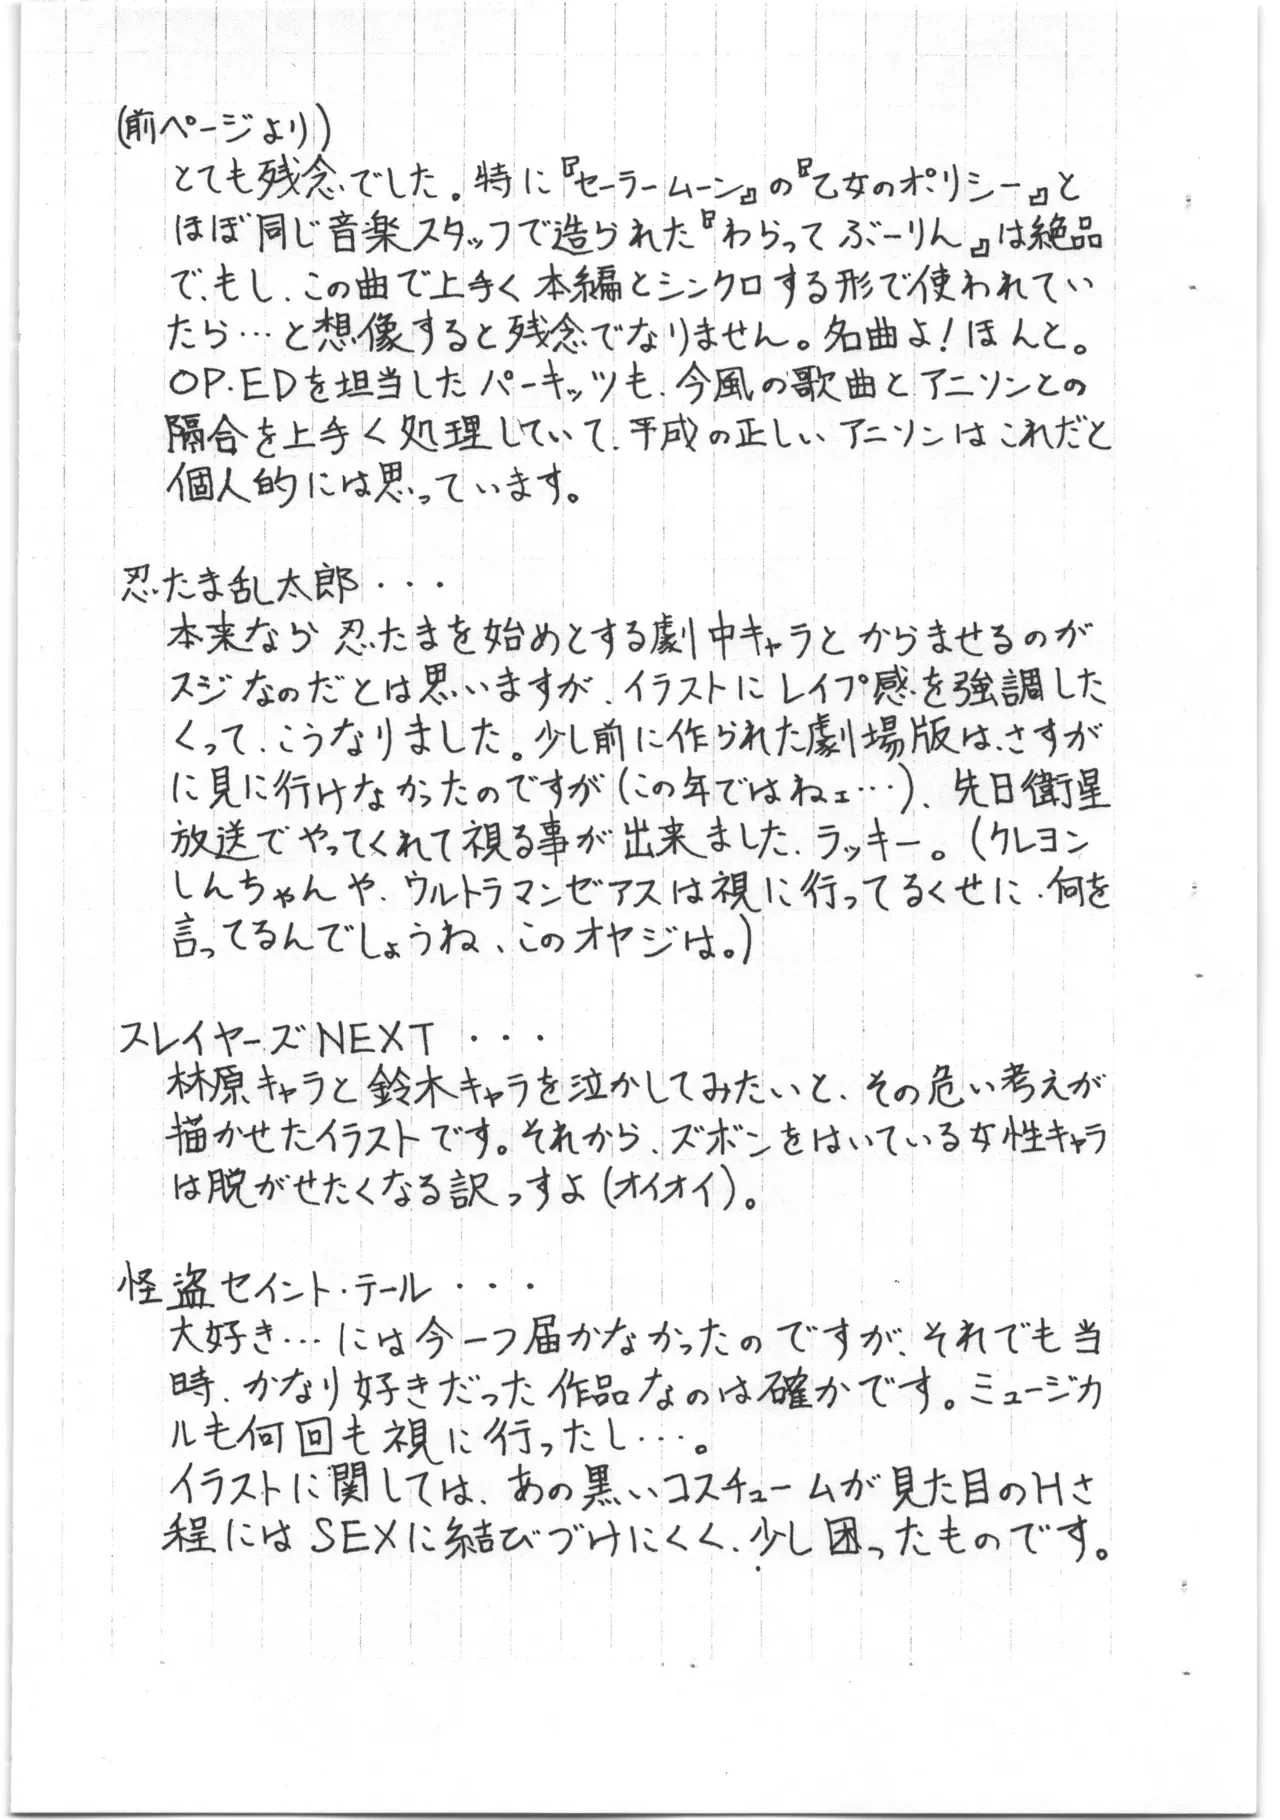 (前ページより)
とても残念でした。特に『セーラームーン』の『乙女のポリシー』と
ほぼ同じ音楽スタッフで造られた『わらってぶーりん』は絶品
で、もし、この曲で上手く本編とシンクロする形で使われてい
たら…と想像すると残念でなりません。名曲よ！ほんと。
OP.EDを担当したパーキッツも、今風の歌曲とアニソンとの
隔合を上手く処理していて、平成の正しいアニソンはこれだと
個人的には思っています。
忍たま乱太郎・・・
本来なら忍たまを始めとする劇中キャラとからませるのが
スジなのだとは思いますが、イラストにレイプ感を強調した
くって、こうなりました。少し前に作られた劇場版は、さすが
に見に行けなかったのですが(この年ではねェ…)、先日衛星
放送でやってくれて視る事が出来ました、ラッキー。(クレヨン
しんちゃんや、ウルトラマンゼアスは視に行ってるくせに、何を
言ってるんでしょうね、このオヤジは。)
スレイヤーズNEXT・・・
林原キャラと鈴木キャラを泣かしてみたいと、その危い考えが
描かせたイラストです。それから、ズボンをはいている女性キャラ
は脱がせたくなる訳っすよ(オイオイ)。
怪盗セイント・テール・・・
大好き…には今一つ届かなかったのですが、それでも当
時、かなり好きだった作品なのは確かです。ミュージカ
ルも何回も視に行ったし…。
イラストに関しては、あの黒いコスチュームが見た目のHさ
程にはSEXに結びづけにくく、少し困ったものです。